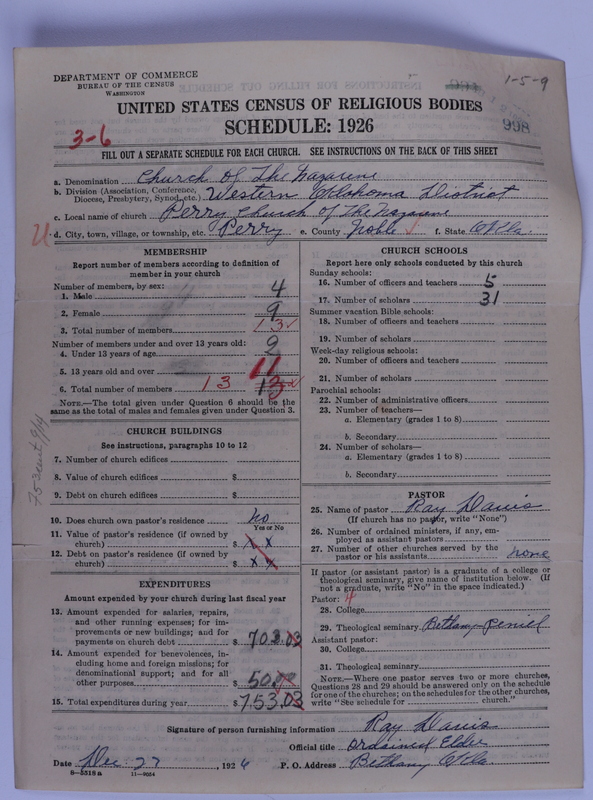 DEPARTMENT OF COMMERCE
BUREAU OF THE CENSUS
WASHINGTON
1-5-9
998
UNITED STATES CENSUS OF RELIGIOUS BODIES
SCHEDULE: 1926
3-6
FILL OUT A SEPARATE SCHEDULE FOR EACH CHURCH. SEE INSTRUCTIONS ON THE BACK OF THIS SHEET
a. Denomination Church of The Nazarene
b. Division (Association, Conference, Diocese, Presbytery, Synod, etc.) Western Oklahoma District
c. Local name of church Perry Church of The Nazarene
U d. City, town, village, or township, etc. Perry e. County Noble f. State Okla.
MEMBERSHIP
Report number of members according to definition of
member in your church
Number of members, by sex:
1. Male 4
2. Female 9
3. Total number of members 13
Number of members under and over 13 years old:
4. Under 13 years of age 2
5. 13 years old and over 11
6. Total number of members 13 13
NOTE.—The total given under Question 6 should be the
same as the total of males and females given under Question 3.
CHURCH BUILDINGS
See instructions, paragraphs 10 to 12
7. Number of church edifices
8. Value of church edifices $
9. Debt on church edifices $
10. Does church own pastor's residence No
Yes or No
11. Value of pastor's residence (if owned by
church) $ x x
12. Debt on pastor's residence (if owned by
church) $ x x
EXPENDITURES
Amount expended by your church during last fiscal year
13. Amount expended for salaries, repairs,
and other running expenses; for im-
provements or new buildings; and for
payments on church debt $ 703.03
14. Amount expended for benevolences, in-
cluding home and foreign missions; for
denominational support; and for all
other purposes $ 50.00
15. Total expenditures during year $ 753.03
CHURCH SCHOOLS
Report here only schools conducted by this church
Sunday schools:
16. Number of officers and teachers 5
17. Number of scholars 31
Summer vacation Bible schools:
18. Number of officers and teachers
19. Number of scholars
Week-day religious schools:
20. Number of officers and teachers
21. Number of scholars
Parochial schools:
22. Number of administrative officers
23. Number of teachers—
a. Elementary (grades 1 to 8)
b. Secondary
24. Number of scholars—
a. Elementary (grades 1 to 8)
b. Secondary
PASTOR
25. Name of pastor Ray Davis
(If church has no pastor, write "None")
26. Number of ordained ministers, if any, em-
ployed as assistant pastors
27. Number of other churches served by the
pastor or his assistants none
If pastor (or assistant pastor) is a graduate of a college or
theological seminary, give name of institution below. (If
not a graduate, write "No" in the space indicated.)
Pastor:
28. College
29. Theological seminary Bethany-Peniel
Assistant pastor:
30. College
31. Theological seminary
NOTE.—Where one pastor serves two or more churches,
Questions 28 and 29 should be answered only on the schedule
for one of the churches; on the schedules for the other churches,
write "See schedule for church."
Signature of person furnishing information Ray Davis
Official title Ordained Elder
Date Dec 27, 1926 P. O. Address Bethany Okla.
8-5518a 11-9054